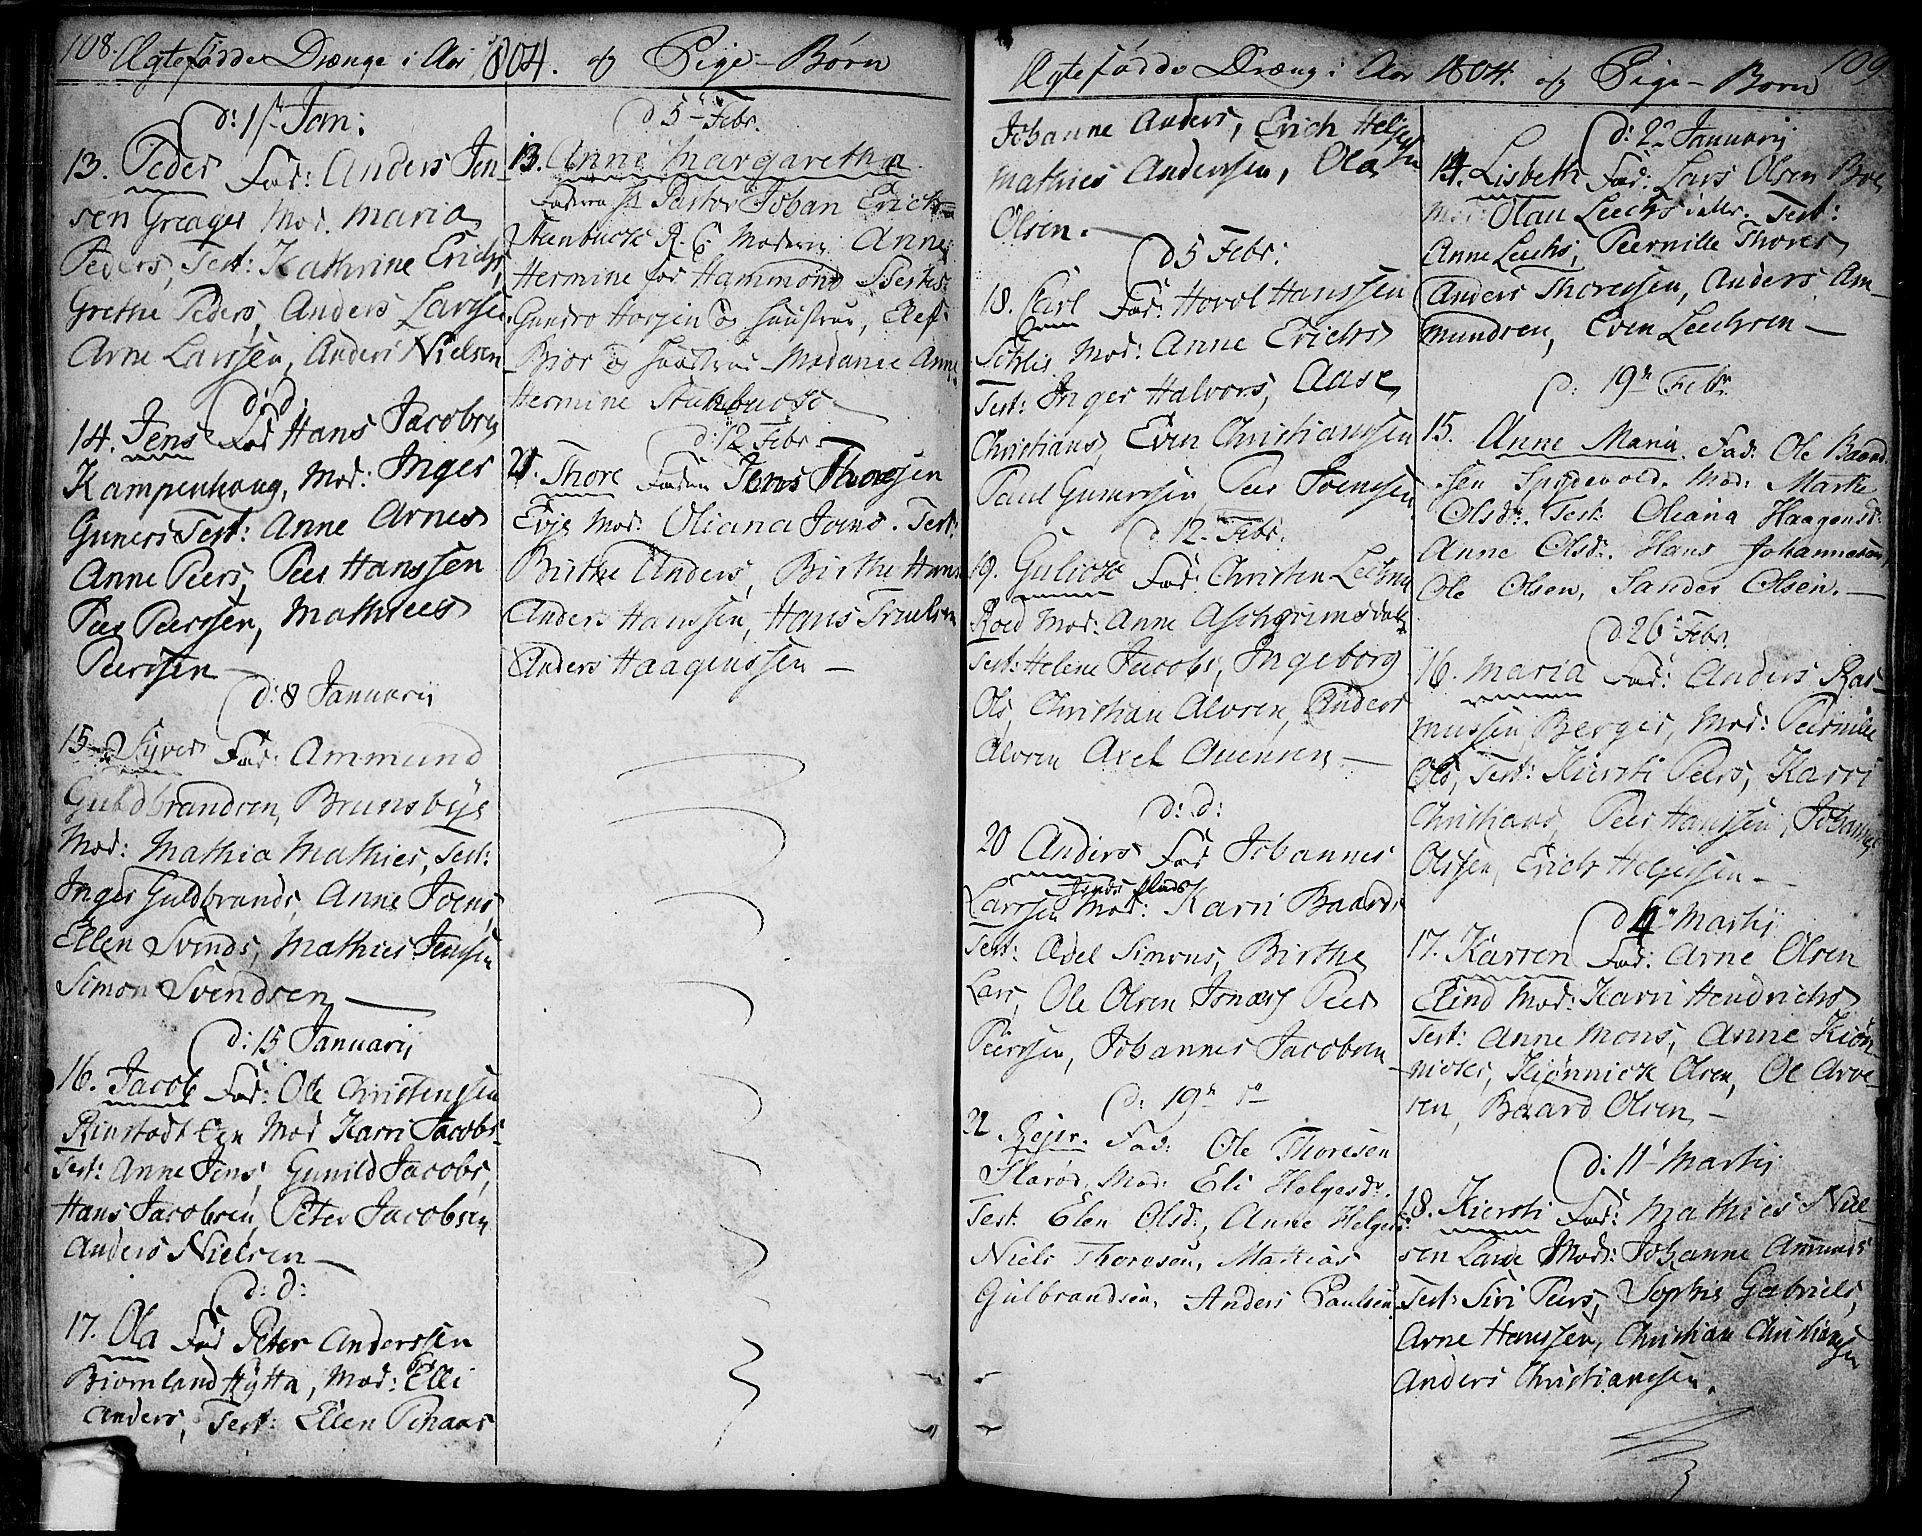 108. Ægtefødde Drænge i Aar 1804. og Pige-Børn
d: 1st Jan:
13. Peder Fad: Anders Jen-
sen Greager Mod. Maria
Peders, Test: Kathrine Erichs,
Grethe Peders, Anders Larssen
Arne Larssen, Anders Nielsen
d: d:
14. Jens Fad Hans Jacobsen
Kampenhoug, Mod: Inger
Guners Test: Anne Arnes
Anne Peers, Peer Hanssen
Peer Peerssen, Mathies
Peerssen
d: 8 Januarij
15. Syver Fad: Ammund
Guldbrandsen, Brunsbye
Mod: Mathia Mathies, Test:
Inger Guldbrands, Anne Joens,
Ellen Svends, Mathies Jenssen
Simon Svendsen
d: 15 Januarij
16. Jacob Fad: Ole Christenssen
Rinstadt Mod Karri Jacobs
Test: Anne Jens, Gunild Jacobs,
Hans Jacobsen, Peter Jacobsen
Anders Nielsen
d: d:
17. Ola Fad Peter Anderssen
Biørnland Hytta, Mod: Elli
Anders, Test: Ellen
d 5 Febr.
13. Anne Margaretha
Faderen Hr Pastor Johan Erich
Stenbuck Moderen Anne
Hermine før Hammond
Hermine Stenbuck
d: 12 Febr.
21. Thore Faderen Jens Thoresen
Evje Mod: Oliana Joens. Test:
Birthe Anders, Birthe Hans
Anders Hanssen, Hans Truelsen
Anders Haagenssen
Ægtefødde Dræng i Aar 1804. og Pige-Børn 109
Johanne Anders, Erich Helgessen
Mathies Anderssen, Ola
Olsen.
d 5 Febr:
18. Carl Fad: Hovel Hanssen
Mod: Anne Erichs
Test: Inger Halvors, Aase
Christians, Even Christianssen
Paul Gunerssen Peer Joenssen
d 12. Febr.
19. Gulick Fad: Christen
Roed Mod: Anne Aschgrimsdatr
Test: Helene Jacobs, Ingeborg
Ols, Christian Alvsen, Anders
Alvsen Axel
d: d:
20 Anders Fad Johannes
Larssen Mod: Karri Baards
Test: Edel Simons, Birthe
Lars, Ole Olsen Peer
Peerssen, Johannes Jacobsen
d: 19n
22. Rejer. Fad: Ole Thoresen
Skarød, Mod: Eli Helgesdr.
Test. Elen Olsd:, Anne Helges
Niels Thoresen, Mathias
Gulbrandsen, Anders Paulsen
d: 2n Januarij
14. Lisbeth Fad: Lars Olsen Boe
Mod: Olau Leechs Test:
Anne Leechs, Peernille Thores
Anders Thoressen, Anders Am-
mundsen, Even Leechsen
d: 19n Febr
15. Anne Maria. Fad: Ole Baard-
sen Spydevold. Mod: Marthe
Olsdr. Test: Oliana Haagensd:
Anne Olsdr. Hans Johannesen
Ole Olsen, Sander Olsen.
d 26 Febr.
16. Maria Fad: Anders Ras-
mussen Berger, Mod: Peernille
Ols, Test: Kiersti Peers, Karri
Christians, Peer Hanssen, Johannes
Olssen, Erich Helgessen
d 4n Martij
17. Karren Fad: Arne Olsen
Eind Mod: Karri Hendrichs
Test: Anne Mons, Anne Kiøn-
nicks, Kiønnick Olsen, Ole Arve-
sen, Baard Olsen
d: 11 Martij
18. Kiersti Fad: Mathies Niel-
sen Lane Mod: Johanne Ammunds
Test: Siri Peers, Sophie Gabriels,
Arne Hanssen, Christian Christianssen
Anders Christianssen.